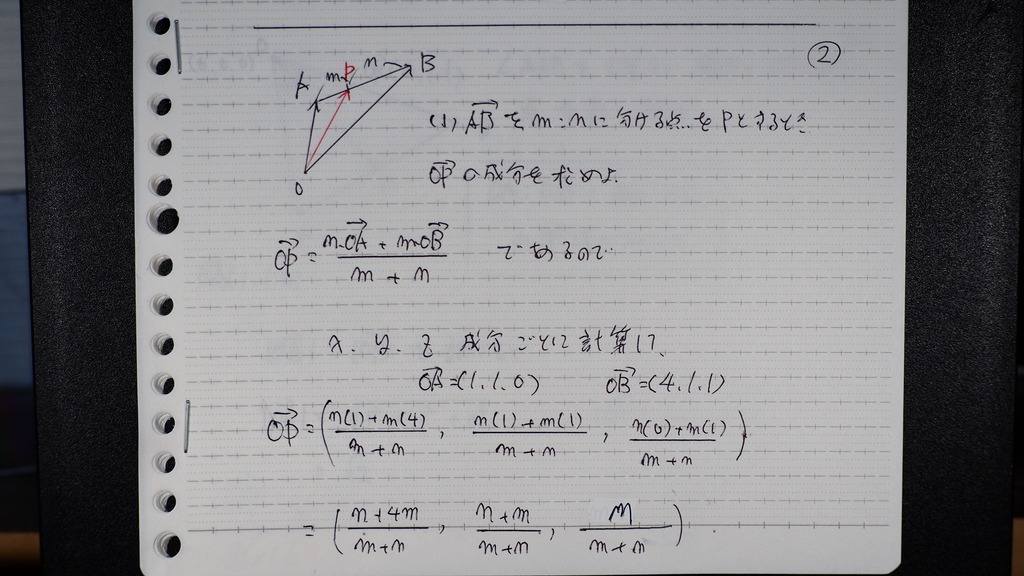 ②
A m P n B
O
(1) $\overrightarrow{AB}$ を m:n に分ける点をPとするとき
$\overrightarrow{OP}$ の成分を求めよ.
$\overrightarrow{OP} = \frac{n\overrightarrow{OA} + m\overrightarrow{OB}}{m + n}$ であるので
x. y. z 成分ごとに計算して、
$\overrightarrow{OA}=(1.1.0)$ $\overrightarrow{OB}=(4.1.1)$
$\overrightarrow{OP} = \left(\frac{n(1)+m(4)}{m+n}, \frac{n(1)+m(1)}{m+n}, \frac{n(0)+m(1)}{m+n}\right)$
$= \left(\frac{n+4m}{m+n}, \frac{n+m}{m+n}, \frac{m}{m+n}\right)$.